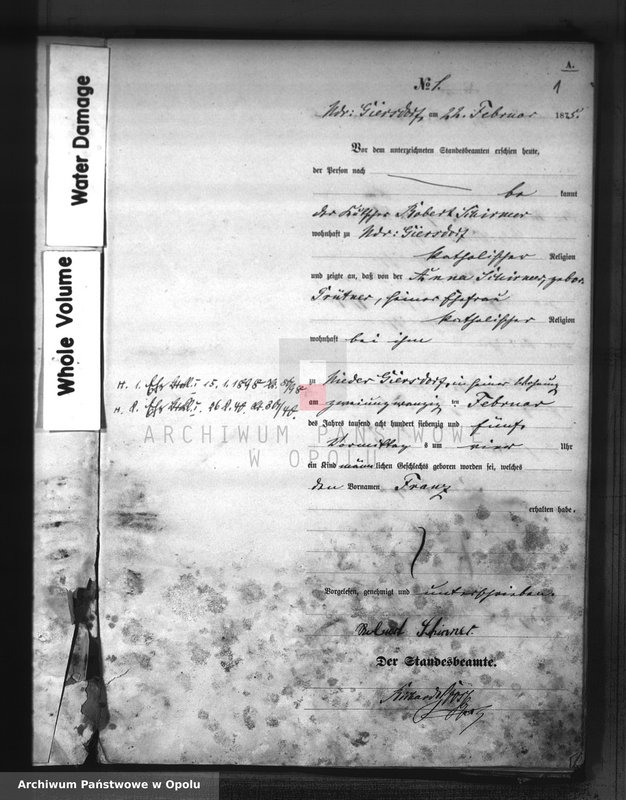 A.
№ 1.
1
Ndr: Giersdorf, am 22. Februar 1875.
Vor dem unterzeichneten Standesbeamten erschien heute,
der Person nach
be kannt
der Robert Schirmer
wohnhaft zu Ndr: Giersdorf
katholischer Religion
und zeigte an, daß von der Anna Schirmer, gebor.
seiner Ehefrau
katholischer Religion
wohnhaft bei ihm
zu Nieder Giersdorf, in seiner Wohnung
am zweiundzwanzig ten Februar
des Jahres tausend acht hundert siebenzig und fünf,
Vormittag s um vier Uhr
ein Kind männlichen Geschlechts geboren worden sei, welches
den Vornamen Franz
erhalten habe.
Vorgelesen, genehmigt und unterschrieben.
Robert Schirmer
Der Standesbeamte.
Water Damage
Whole Volume
ARCHIWUM PAŃSTWOWE
W OPOLU
Archiwum Państwowe w Opolu